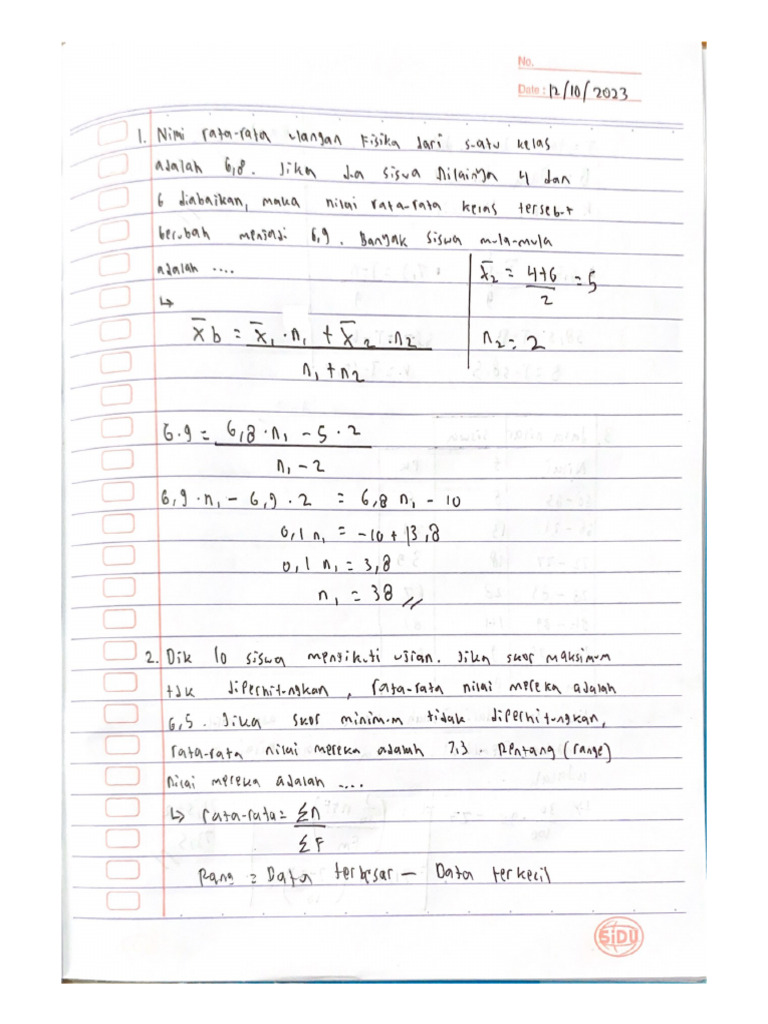 No.
Date : 12/10/2023
1. Nilai rata-rata ulangan Fisika dari satu kelas
adalah 6,8. Jika dua siswa nilainya 4 dan
6 diabaikan, maka nilai rata-rata kelas tersebut
berubah menjadi 6,9. Banyak siswa mula-mula
adalah ....
x̄₂ = 4+6/2 = 5
↳
x̄b = x̄₁ · n₁ + x̄₂ · n₂ / n₁ + n₂
n₂ = 2
6.9 = 6,8 · n₁ - 5 · 2 / n₁ - 2
6,9 · n₁ - 6,9 · 2 = 6,8 n₁ - 10
0,1 n₁ = -10 + 13,8
0,1 n₁ = 3,8
n₁ = 38 //
2. Dik 10 siswa mengikuti ujian. Jika skor maksimum
tdk diperhitungkan, rata-rata nilai mereka adalah
6,5. Jika skor minimum tidak diperhitungkan,
rata-rata nilai mereka adalah 7,3. Rentang (range)
nilai mereka adalah ....
↳ rata-rata = Σn / ΣF
Rang = Data terbesar - Data terkecil
SiDU